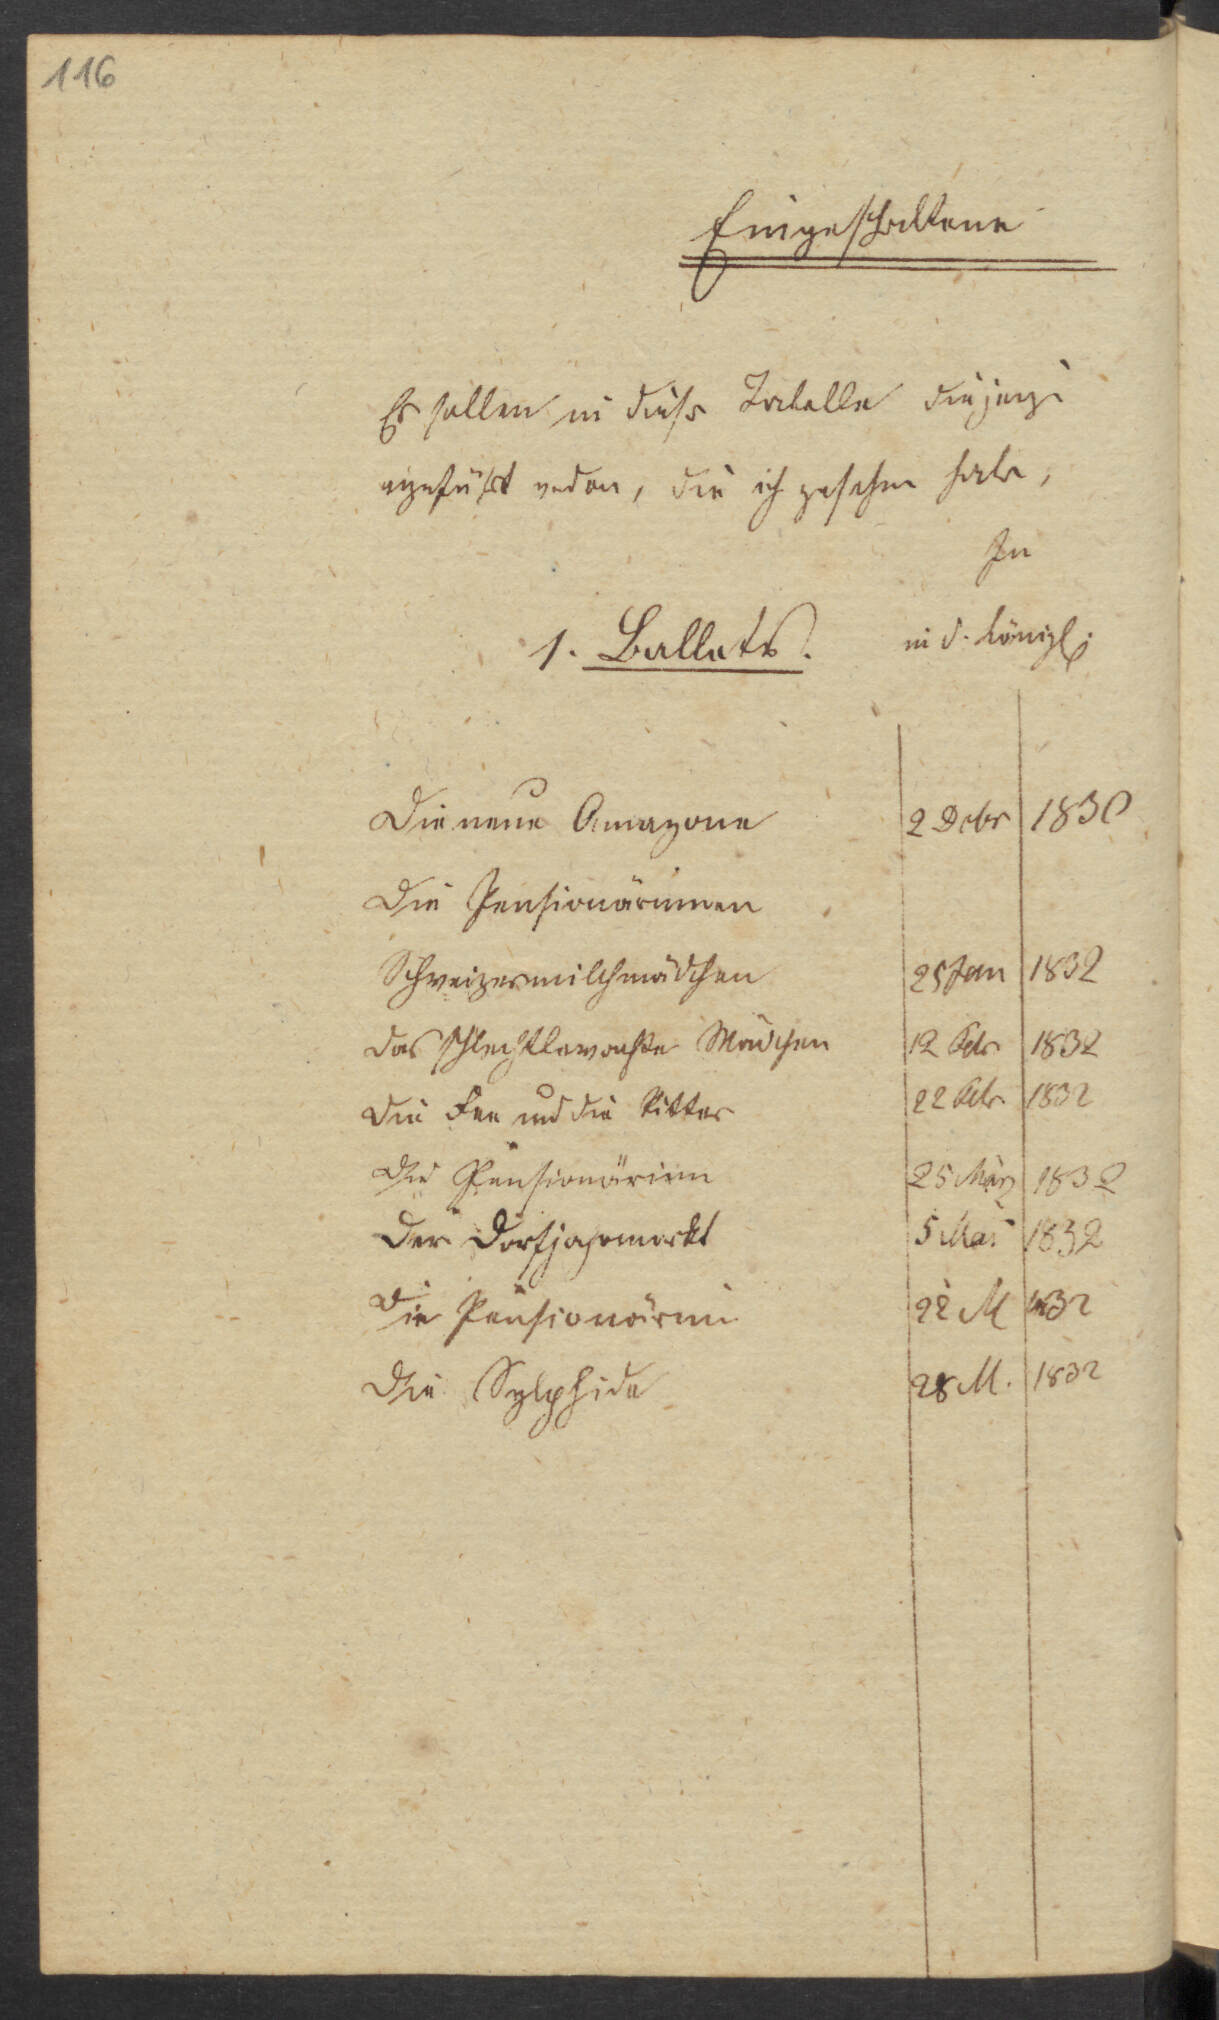 116
Eingeschaltene
Es sollen in dieser Tabelle diejenige
angeführt werden, die ich gesehen habe,
In
1. Ballets. in d. Königl.
Die neue Amazone 2 Debr 1830
Die Pensionärinnen
Schweizermilchmädchen 25 Jan 1832
das schlechtbewachte Mädchen 12 Febr 1832
die Fee und die Ritter 22 Febr. 1832
Die Pensionärinn 25 März 1832
Der Dorfjahrmarkt 5 Mai 1832
Die Pensionärinn 22 M 1832
Die Sylphide 28 M. 1832